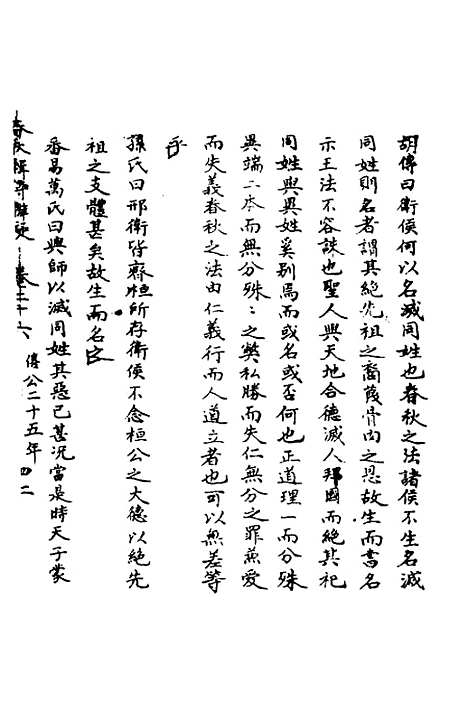 胡傳曰衛侯何以名滅同姓也春秋之法諸侯不生名滅
同姓則名者謂其絶先祖之裔蔑骨肉之恩故生而書名
示王法不容誅也聖人與天地合德滅人邦國而絶其祀
同姓與異姓奚别焉而或名或否何也正道理一而分殊
異端二本而無分殊:之獘私勝而失仁無分之罪兼愛
而失義春秋之法由仁義行而人道立者也可以無差等
乎
孫氏曰邢衛皆齊桓所存衛侯不念桓公之大德以絶先
祖之支體甚矣故生而名之
番易萬氏曰興師以滅同姓其惡已甚况當是時天子蒙
春秋 卷二十六 僖公二十五年 四二